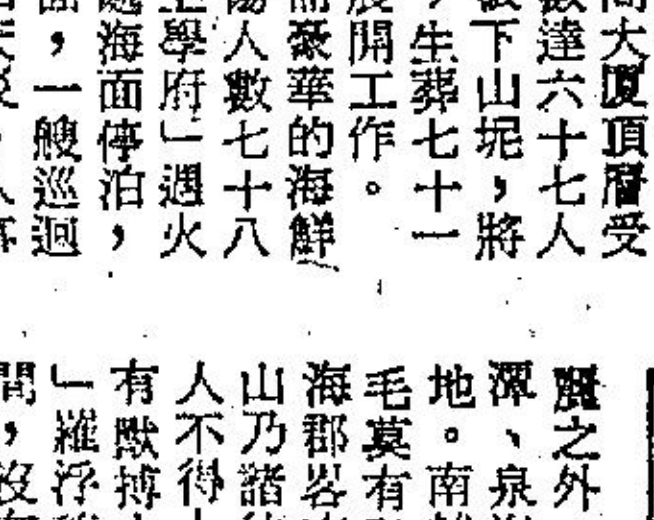 大廈頂層受
數達六十七人
下山坭，將
，生葬七十一
展開工作。
而豪華的海鮮
傷人數七十八
學府」遇火
處海面停泊，
，一艘巡迴
之外
潭、泉
地。南
毛莫有
海郡畧
山乃諸
人不得
有獸搏
」羅浮
間，沒